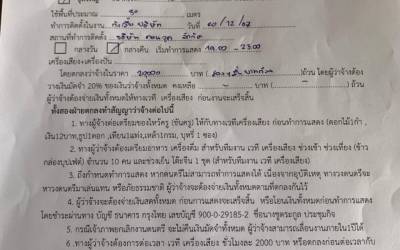 ใช้พื้นที่ประมาณ 50 เมตร
ทำการติดตั้งในงาน วันที่ 20/12/67
สถานที่ทำการติดตั้ง บริษัท
กลางวัน กลางคืน เริ่มทำการแสดง 19.00 - 23.00
เครื่องเสียง+เครื่องปั่น
โดยตกลงว่าจ้างในราคา บาท ( ) ถ้วน โดยผู้ว่าจ้างต้อง
วางเงินมัดจำ 20% ของเงินว่าจ้างทั้งหมด คงเหลือ - บาท ( - ) ถ้วน
ผู้ว่าจ้างต้องจ่ายเงินทั้งหมดให้ทางเวที เครื่องเสียง ก่อนงานจะเสร็จสิ้น
ทั้งสองฝ่ายตกลงทำสัญญาว่าจ้างต่อไปนี้
1. ทางผู้ว่าจ้างต้องเตรียมของไหว้ครู (ขันครู) ให้กับทางเวทีเครื่องเสียง ก่อนทำการแสดง (ดอกไม้3กำ ,
เงิน12บาท,ธูป1ดอก ,เทียน1แท่ง,เหล้า1กรม, บุหรี่ 1 ซอง)
2. ทางผู้ว่าจ้างต้องเตรียมอาหาร เครื่องดื่ม สำหรับทีมงาน เวที เครื่องเสียง ช่วงเช้า ช่วงเที่ยง (ข้าว
กล่อง,บุปเฟต์) จำนวน 10 คน และช่วงเย็น โต๊ะจีน 1 ชุด (สำหรับทีมงาน เวที เครื่องเสียง)
3. ถึงกำหนดทำการแสดง หากดนตรีไม่สามารถทำการแสดงได้ เนื่องจากอุบัติเหตุ ทางวงดนตรีจะ
หาวงดนตรีมาเล่นแทน หรือภัยธรรมชาติ ผู้ว่าจ้างจะต้องจ่ายเงินทั้งหมดตามที่ตกลงกันไว้
4. ผู้ว่าจ้างจะต้องจ่ายเงินสดทั้งหมด ก่อนการแสดงจะเสร็จสิ้น หรือโอนเงินทั้งหมดก่อนทำการแสดง
โดยชำระผ่านทาง บัญชี ธนาคาร กรุงไทย เลขบัญชี 900-0-29185-2 ชื่อนางชูตระกูล ประชุมกิจ
5. กรณีเจ้าภาพยกเลิกงานดนตรี จะไม่คืนเงินมัดจำทั้งหมด ผู้ว่าจ้างสามารถเลื่อนงานภายใน1ปีได้
6 .ทางผู้ว่าจ้างต้องการต่อเวลา เวที เครื่องเสียง ชั่วโมงละ 2000 บาท หรือตกลงก่อนต่อเวลากับ